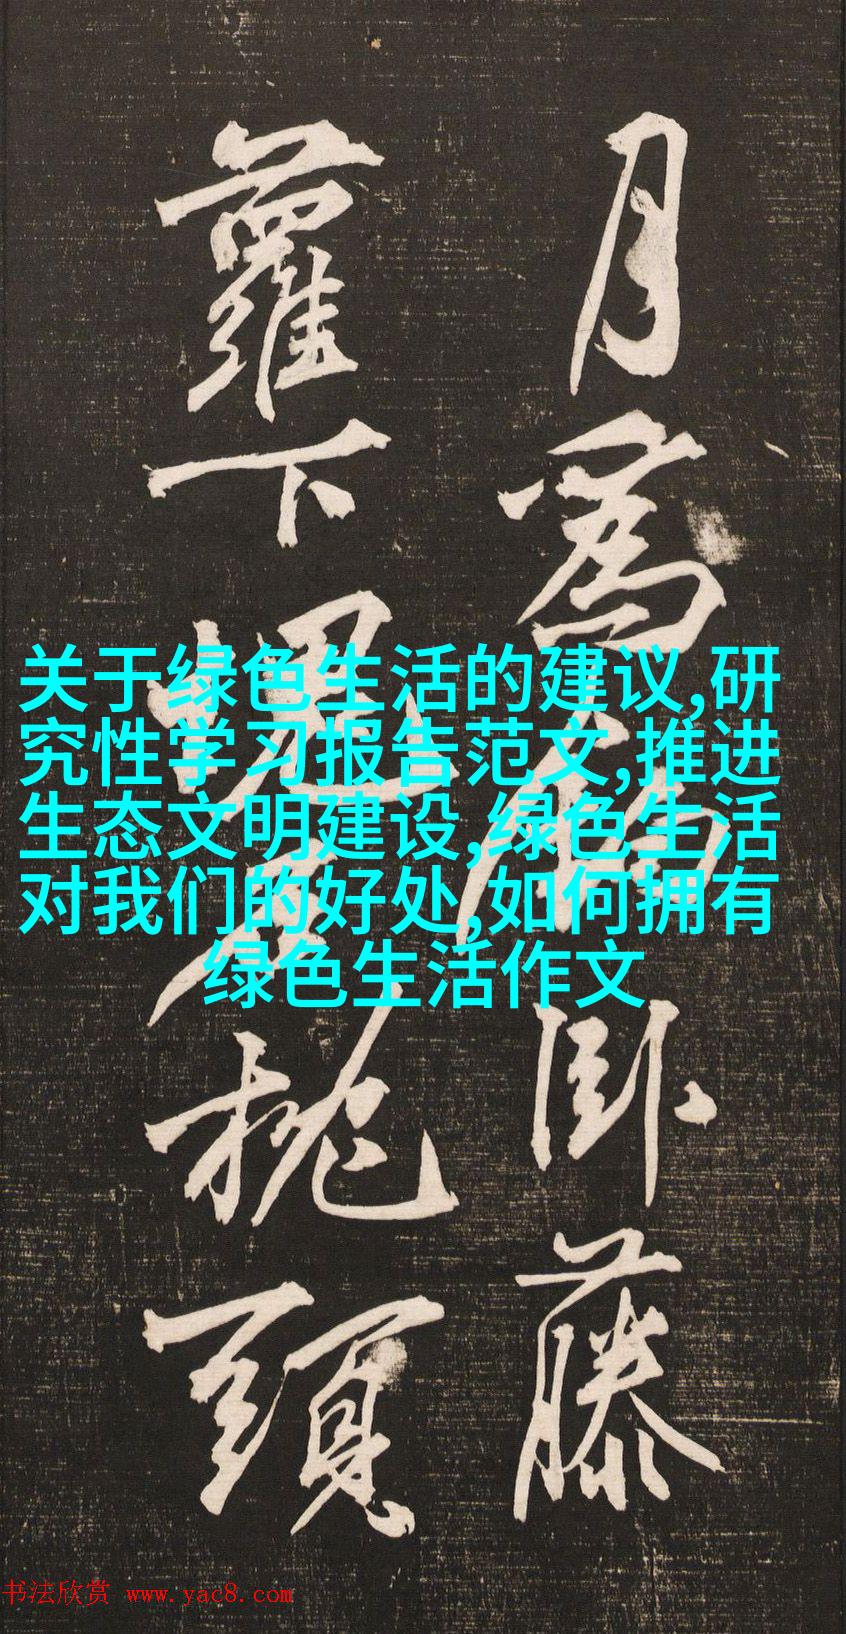 月為鉤卧藤
蘿下塊石枕頭
关于绿色生活的建议,研
究性学习报告范文,推进
生态文明建设,绿色生活
对我们的好处,如何拥有
绿色生活作文
书法欣赏 www.yac8.com